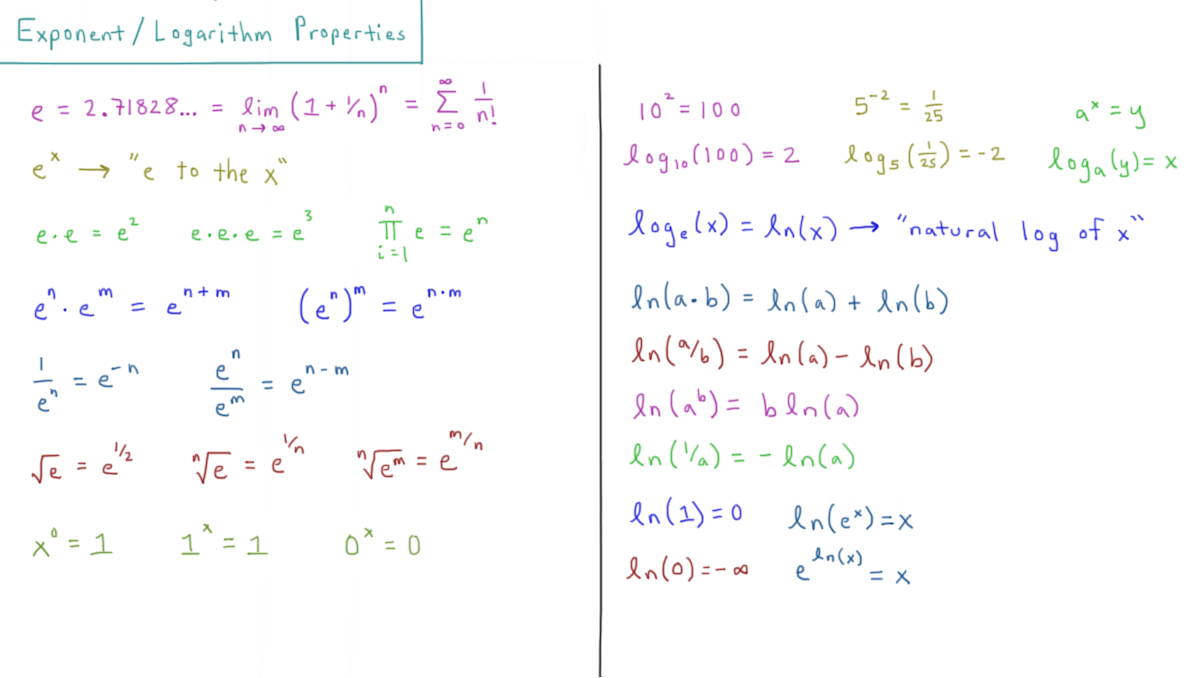 Exponent / Logarithm Properties
e = 2.71828... = lim_{n→∞} (1 + 1/n)^n = Σ_{n=0}^{∞} 1/n!
e^x → "e to the x"
e·e = e^2    e·e·e = e^3    ∏_{i=1}^{n} e = e^n
e^n · e^m = e^{n+m}    (e^n)^m = e^{n·m}
1/e^n = e^{-n}    e^n/e^m = e^{n-m}
√e = e^{1/2}    ⁿ√e = e^{1/n}    ⁿ√e^m = e^{m/n}
x^0 = 1    1^x = 1    0^x = 0
10^2 = 100    5^{-2} = 1/25    a^x = y
log_{10}(100) = 2    log_5(1/25) = -2    log_a(y) = x
log_e(x) = ln(x) → "natural log of x"
ln(a·b) = ln(a) + ln(b)
ln(a/b) = ln(a) - ln(b)
ln(a^b) = b ln(a)
ln(1/a) = - ln(a)
ln(1) = 0    ln(e^x) = x
ln(0) = -∞    e^{ln(x)} = x